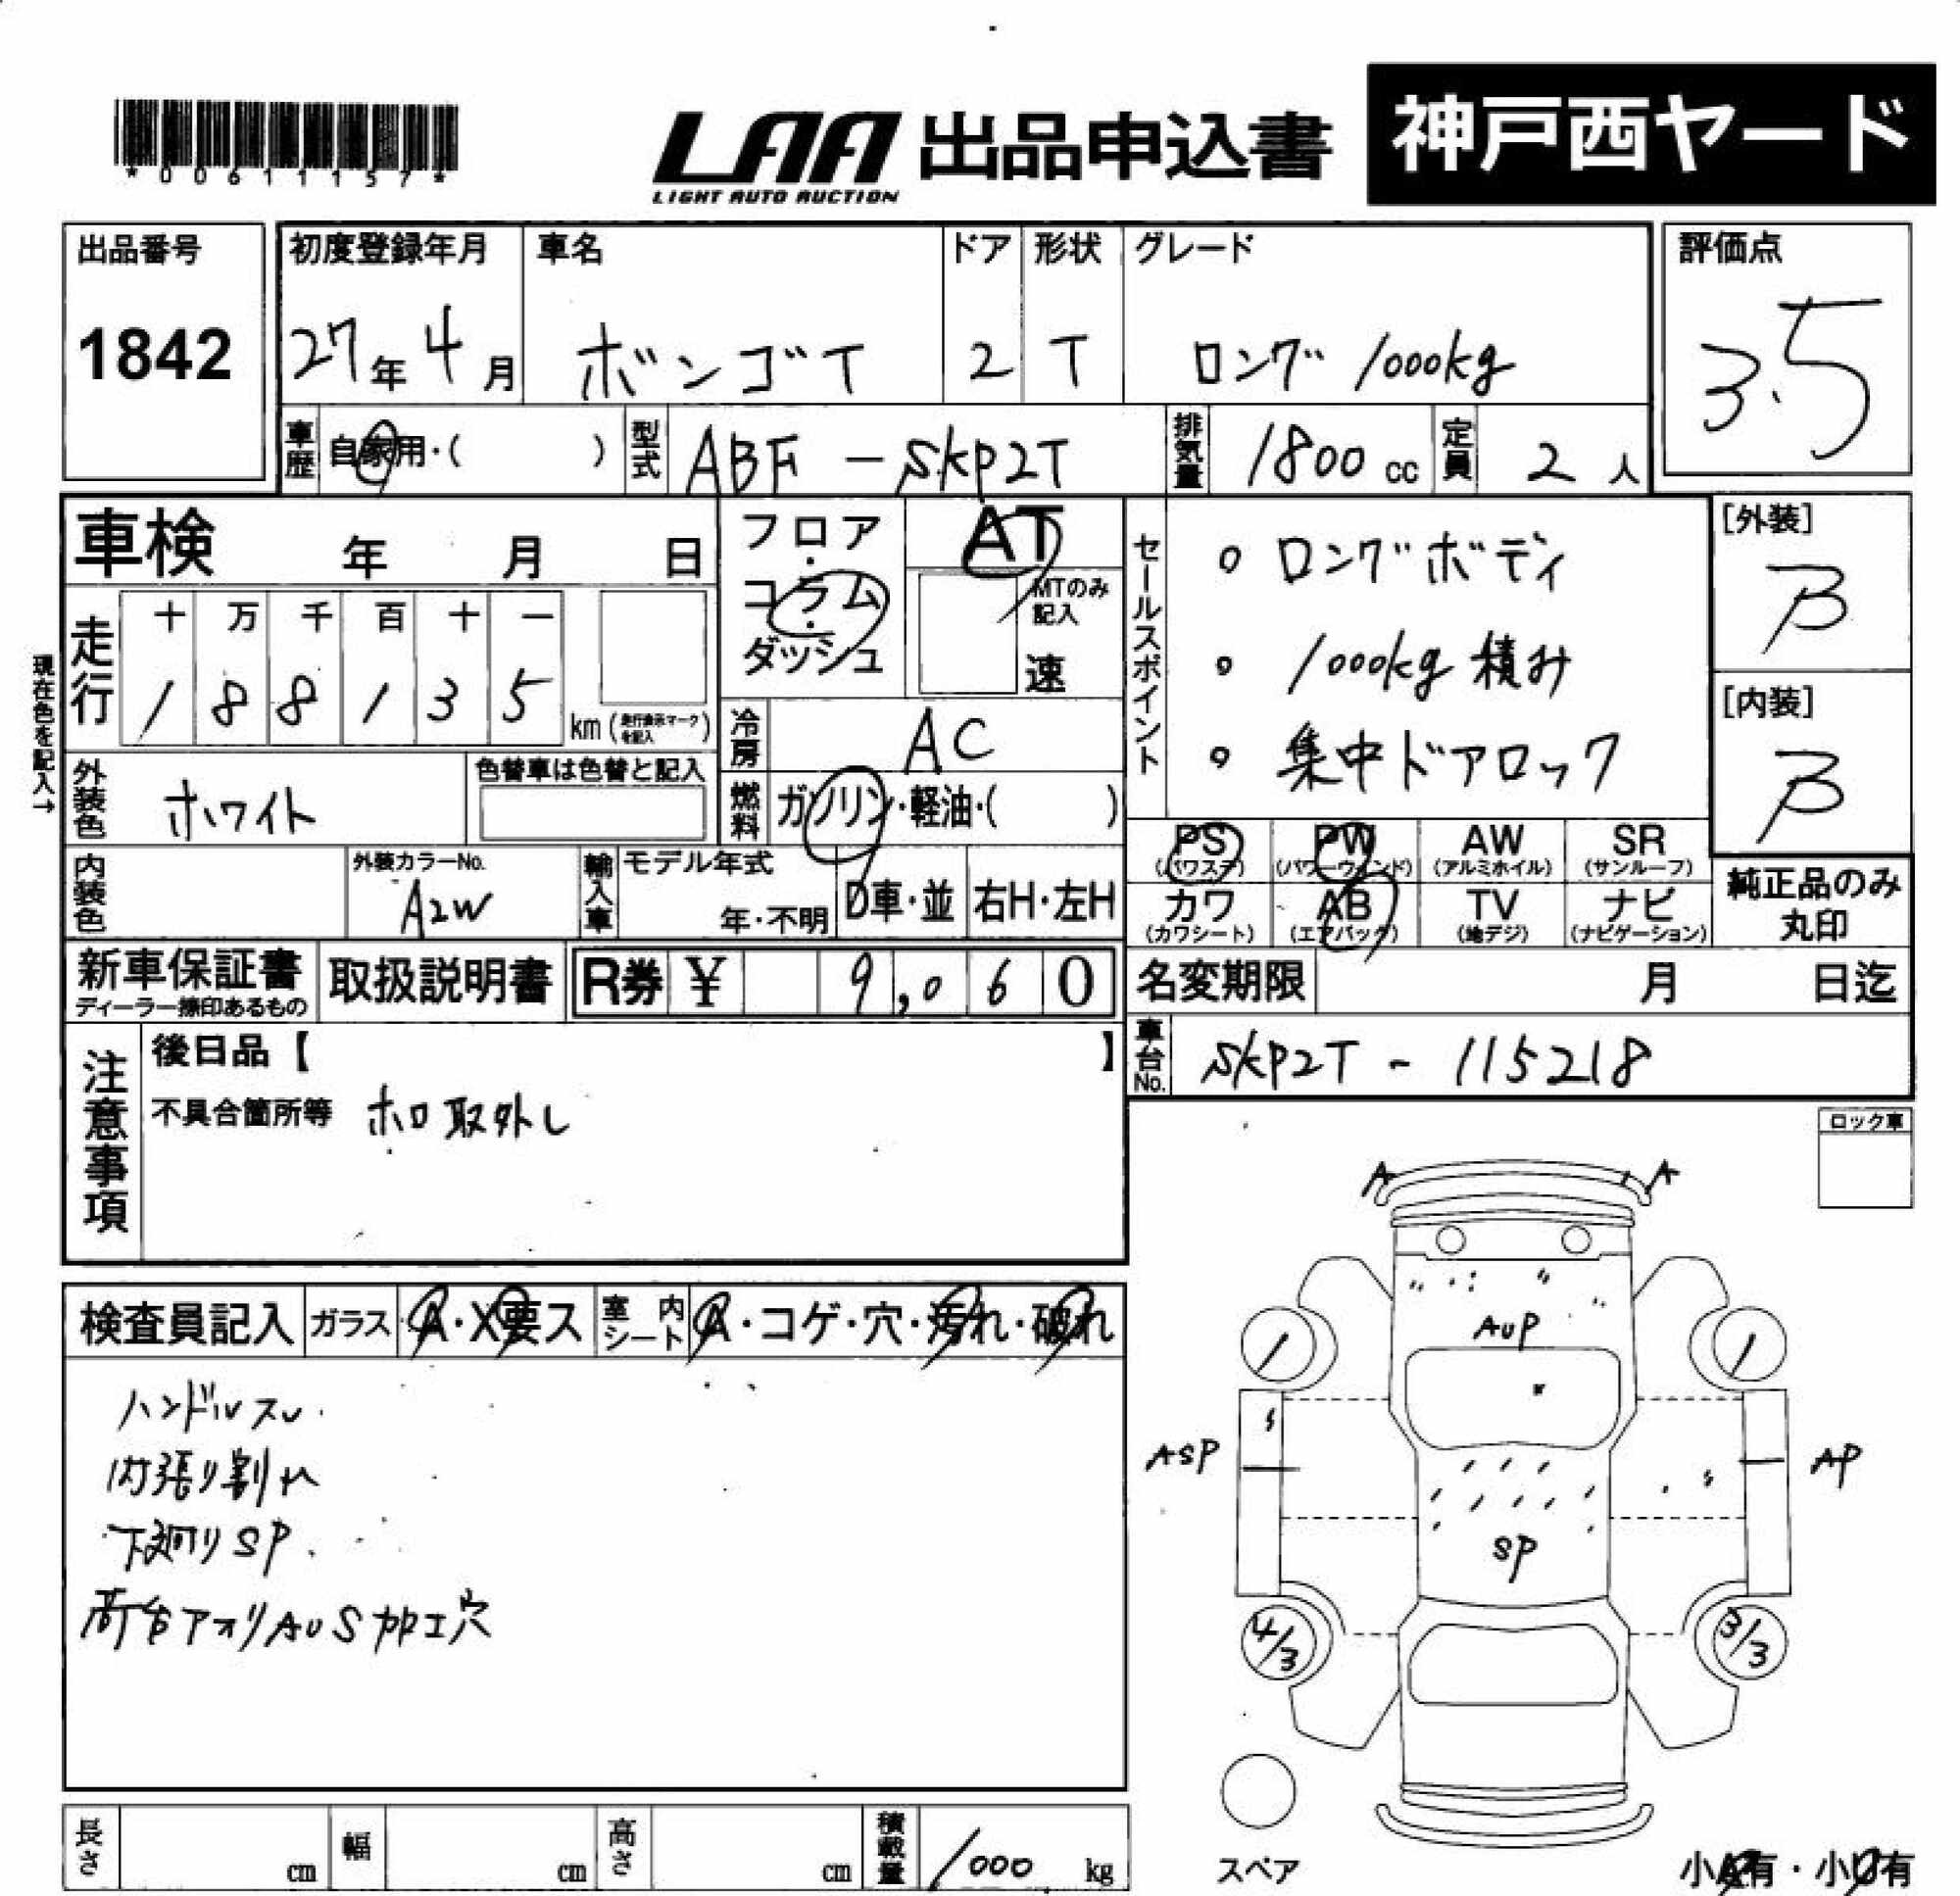 *00611157*
LAA 出品申込書 神戸西ヤード
LIGHT AUTO AUCTION
出品番号
1842
初度登録年月
27年4月
車名
ボンゴT
ドア
2
形状
T
グレード
ロング 1000kg
評価点
3.5
車歴 自家用・( )
型式 ABF-SKP2T
排気量 1800cc
定員 2人
車検 年 月 日
走行
十 万 千 百 十 一
1 8 8 1 3 5
km (走行表示マークを記入)
現在色を記入→
外装色 ホワイト
色替車は色替と記入
内装色
外装カラーNo.
A2W
フロア・コラム・ダッシュ
AT
MTのみ記入
速
冷房 AC
燃料 ガソリン・軽油・( )
輸入車
モデル年式
年・不明
D車・並
右H・左H
セールスポイント
° ロングボディ
° 1000kg 積み
° 集中ドアロック
[外装]
B
[内装]
B
PS (パワステ)
PW (パワーウィンド)
AW (アルミホイル)
SR (サンルーフ)
カワ (カワシート)
AB (エアバッグ)
TV (地デジ)
ナビ (ナビゲーション)
純正品のみ
丸印
新車保証書
ディーラー捺印あるもの
取扱説明書
R券 ¥ 9,060
名変期限 月 日迄
車台No. SKP2T - 115218
注意事項
後日品【 】
不具合箇所等 ホロ取外し
ロック車
検査員記入
ガラス A・X要ス
室内シート A・コゲ・穴・汚れ・破れ
ハンドルスレ
内張り割れ
下廻りSP
荷台アオリAUS加工穴
A A
AUP
ASP
AP
SP
4/3
3/3
スペア
小A有・小U有
長さ cm
幅 cm
高さ cm
積載量 1000 kg